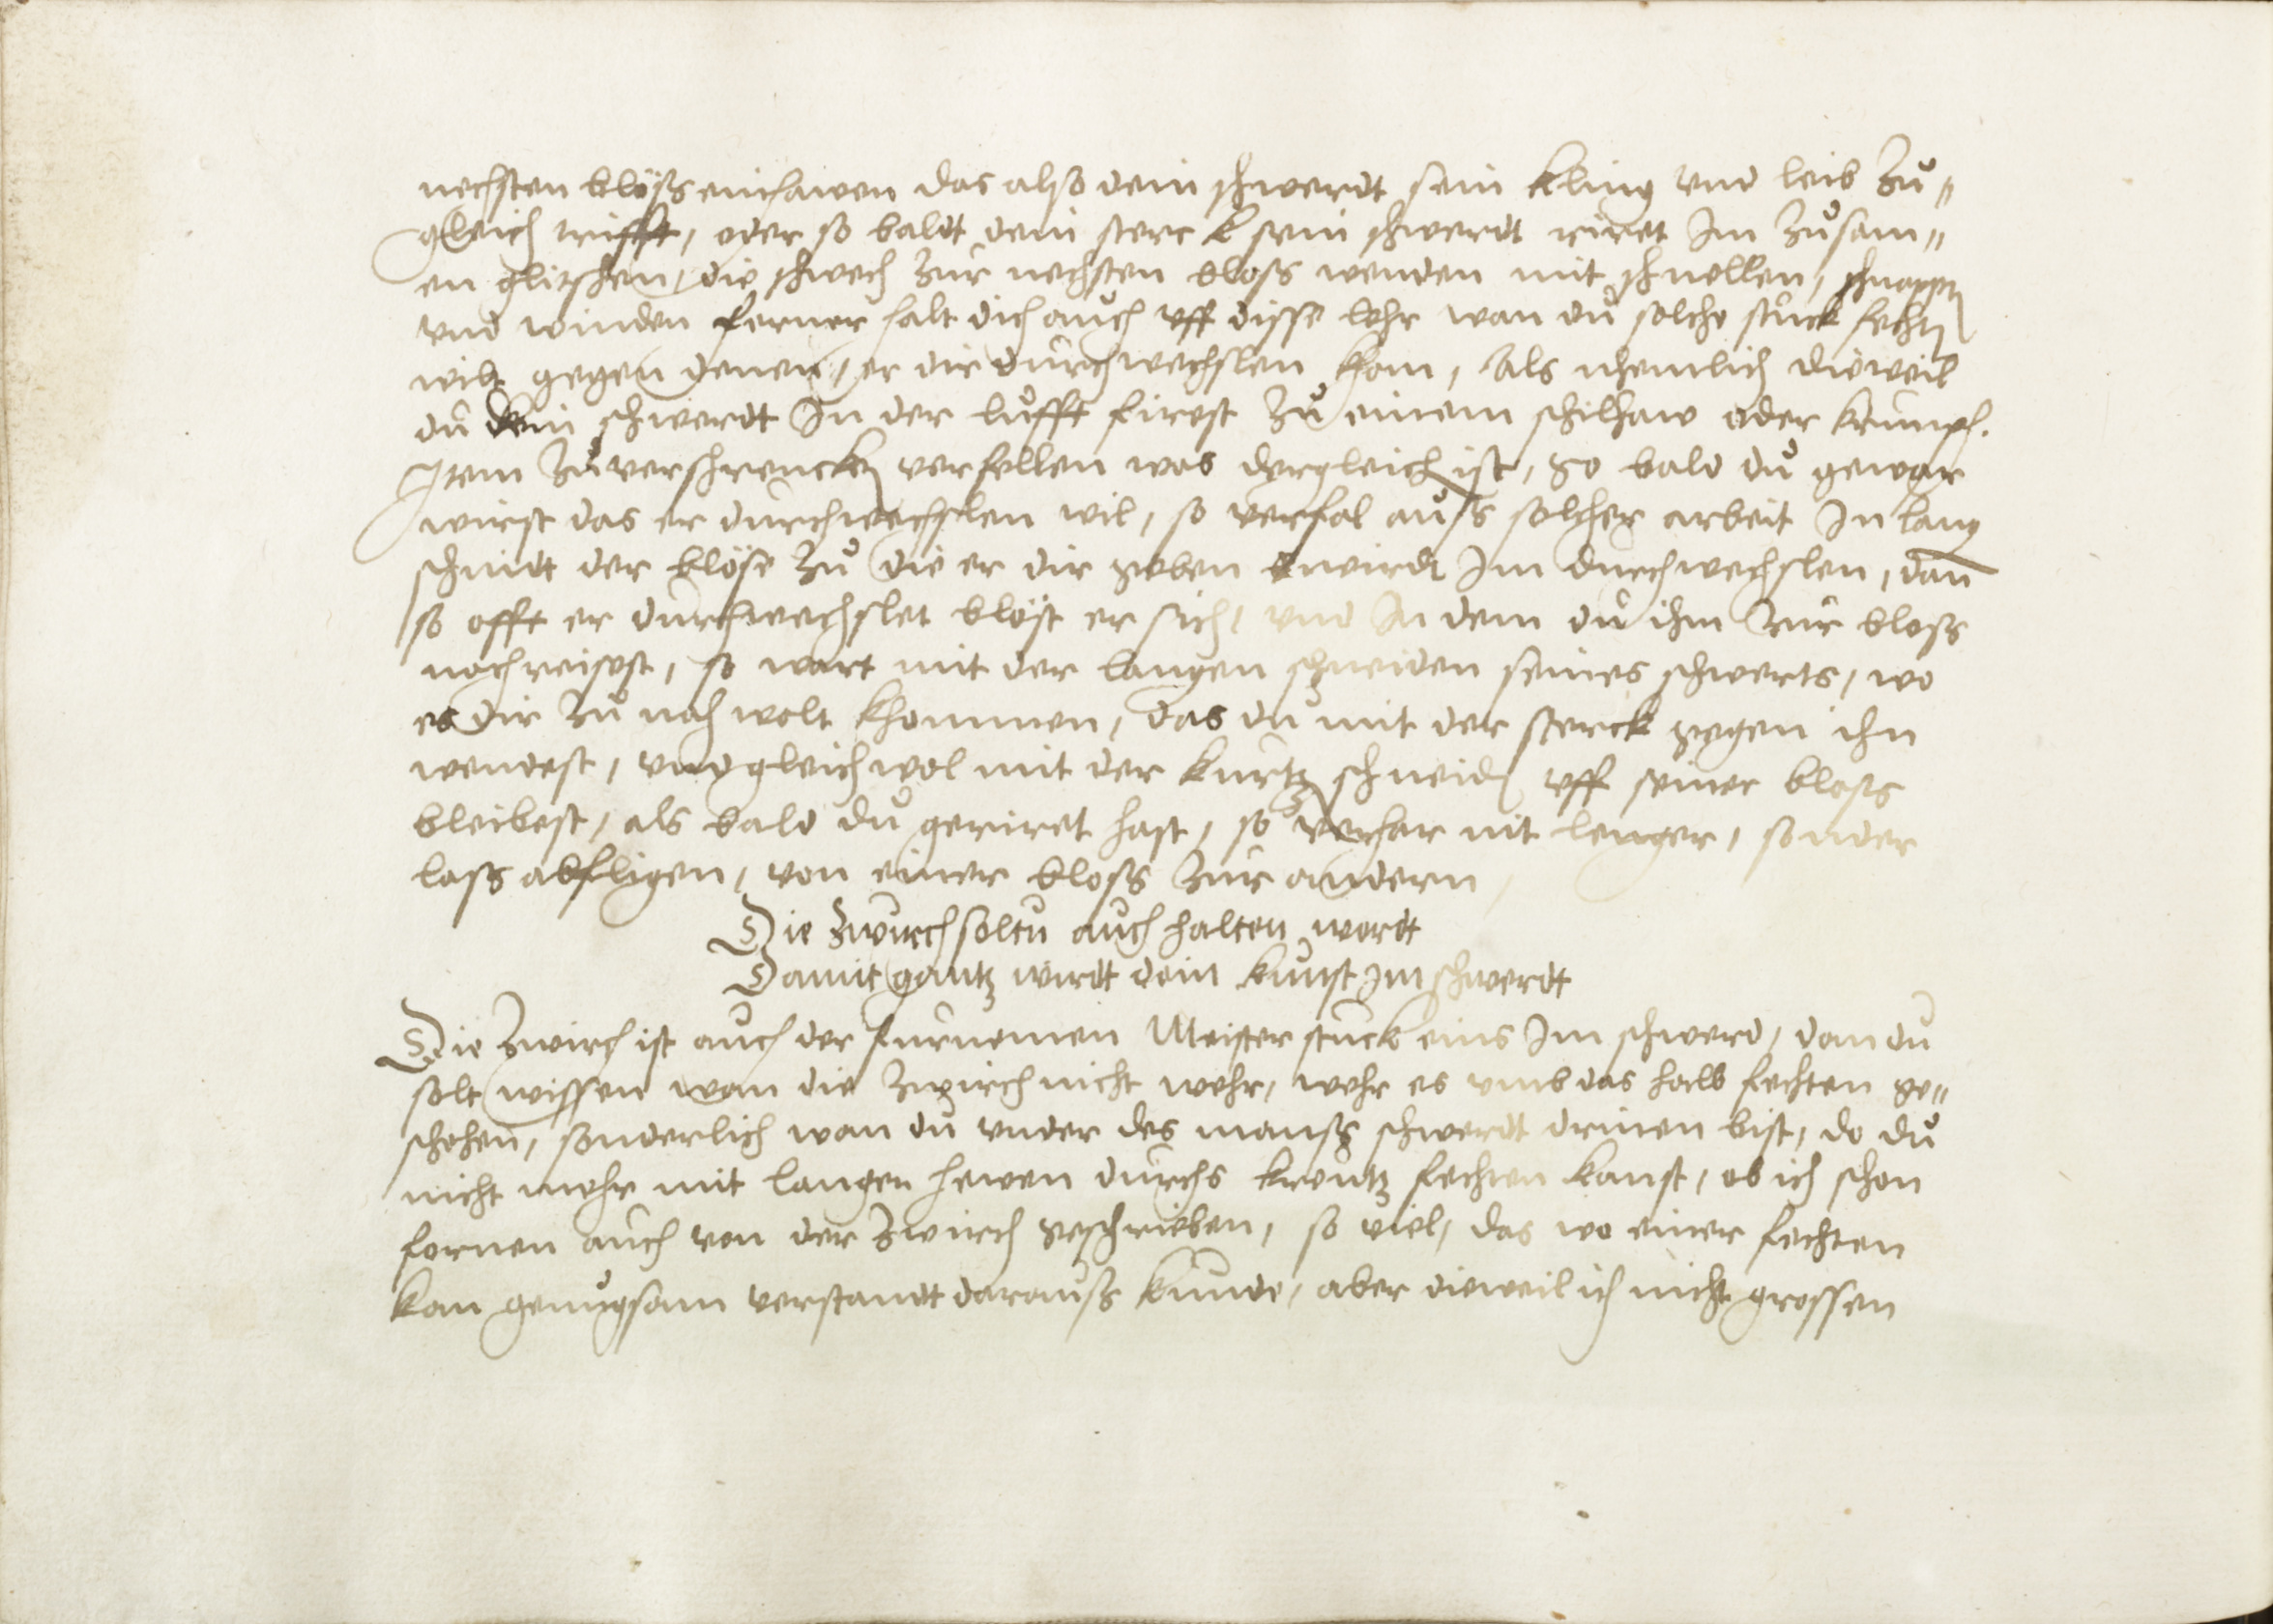 nechsten blöss einhawen das also dein schwerdt sein kling vnd leib zů„
gleich trifft, oder so baldt dein sterck sein schwerdt riret Im zůsam„
en glitzschen, die schwech zur nechsten bloss wenden mit schnellen, schnappen
vnd winden ferner halt dich auch vff disse lehr wan du solche stuck fechten
wilt gegen denen, er dir durchwechslen kham, Als nhemlich dieweil
du dein schwerdt In der lufft fierest zů einem schilhaw oder krumph.
Item zůverschrencken verfellen was dergleich ist, so bald dů gewar
wirst das er durchwechslen wil, so verfal auss solcher arbeit In lang
schnidt der blöse zů die er dir geben wirdt Im durchwechslen, dan̄
so offt er durchwechslet blöst er sich, vnd In dem du ihm zur bloss
nochreisest, so wart mit der langen schneiden seines schwerts, wo
es dir zů noch wolt khommen, das du mit der sterck gegen ihn
wendest, vnd gleich wol mit der kurtz schneiden vff seiner bloss
bleibest, als bald dů geriret hast, so verhar nit lenger, sonder
lass abfligen, von einer bloss zur andern
Die zwurch soltu auch halten werdt
Damit gantz wirdt dein kunst Im schwerdt
Die zwirch ist auch der furnemen Meister stuck eins Im schwerd, dan du
solt wissen wan die zwirch nicht wehr, wehr es vmb das halb fechten ge„
schehen, sonderlich wan du vnder des manss schwerdt drinen bist, do dů
nicht mehr mit langen hewen durchs kreutz fechten kanst, ob ich schon
fornen auch von der zwurch geschrieben, so viel, das wo einer fechten
kan genugsam verstandt darauss kunde, aber dieweil ich nicht grossen